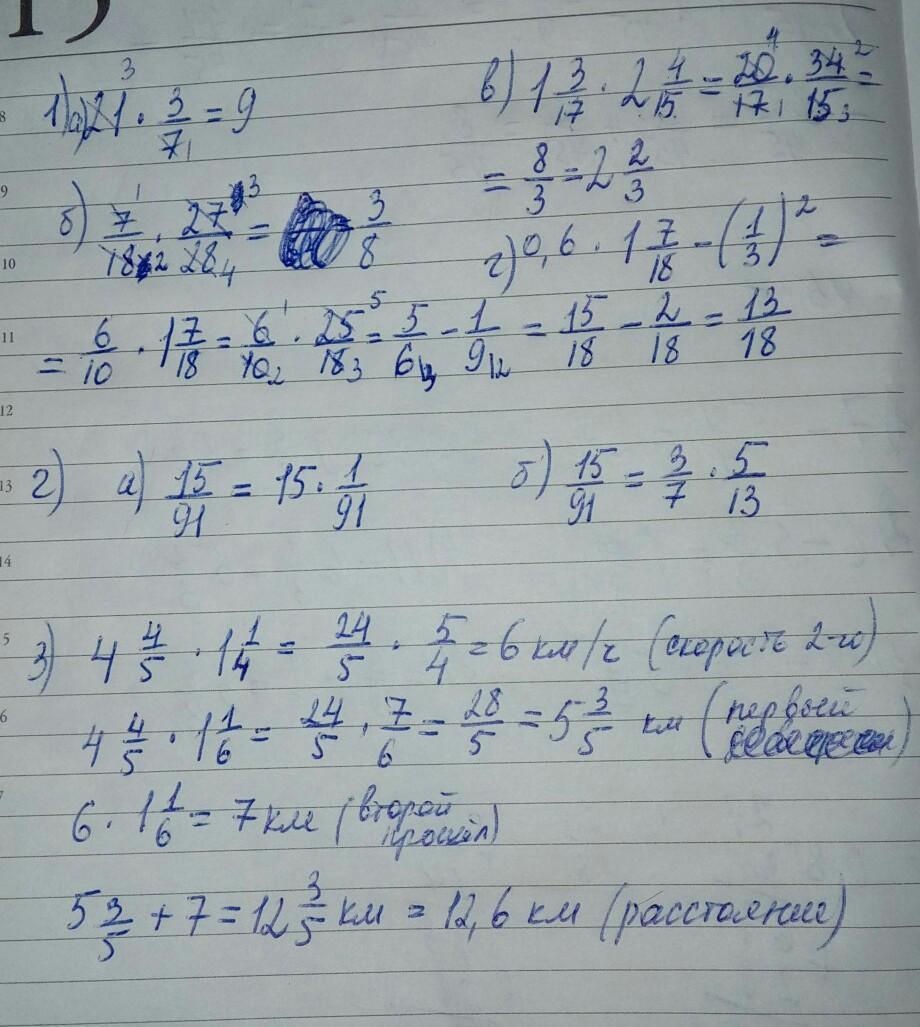 1) а) 21 · 3/7 = 9
в) 1 3/17 · 2 4/15 = 20/17 · 34/15 =
= 8/3 = 2 2/3
б) 7/18 · 27/28 = 3/8
г) 0,6 · 1 7/18 - (1/3)² =
= 6/10 · 1 7/18 = 6/10 · 25/18 = 5/6 - 1/9 = 15/18 - 2/18 = 13/18
2) а) 15/91 = 15 · 1/91
б) 15/91 = 3/7 · 5/13
3) 4 4/5 · 1 1/4 = 24/5 · 5/4 = 6 км/ч (скорость 2-го)
4 4/5 · 1 1/6 = 24/5 · 7/6 = 28/5 = 5 3/5 км (первый
6 · 1 1/6 = 7 км (второй
прошёл)
5 3/5 + 7 = 12 3/5 км = 12,6 км (расстояние)
8
9
10
11
12
13
14
5
6
7